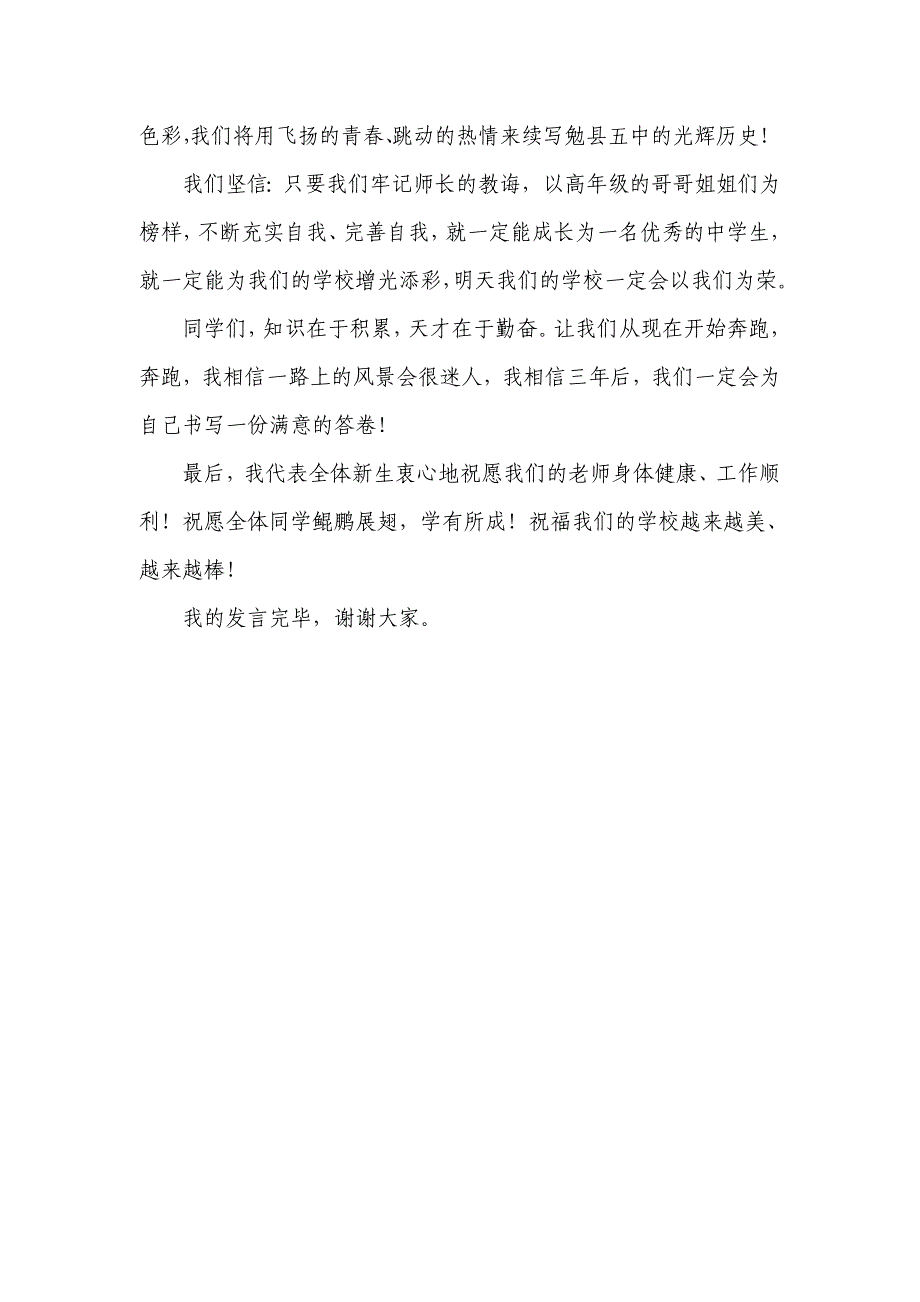 色彩,我们将用飞扬的青春、跳动的热情来续写勉县五中的光辉历史！
我们坚信：只要我们牢记师长的教诲，以高年级的哥哥姐姐们为
榜样，不断充实自我、完善自我，就一定能成长为一名优秀的中学生，
就一定能为我们的学校增光添彩,明天我们的学校一定会以我们为荣。
同学们，知识在于积累，天才在于勤奋。让我们从现在开始奔跑，
奔跑，我相信一路上的风景会很迷人，我相信三年后，我们一定会为
自己书写一份满意的答卷！
最后，我代表全体新生衷心地祝愿我们的老师身体健康、工作顺
利！祝愿全体同学鲲鹏展翅，学有所成！祝福我们的学校越来越美、
越来越棒！
我的发言完毕，谢谢大家。